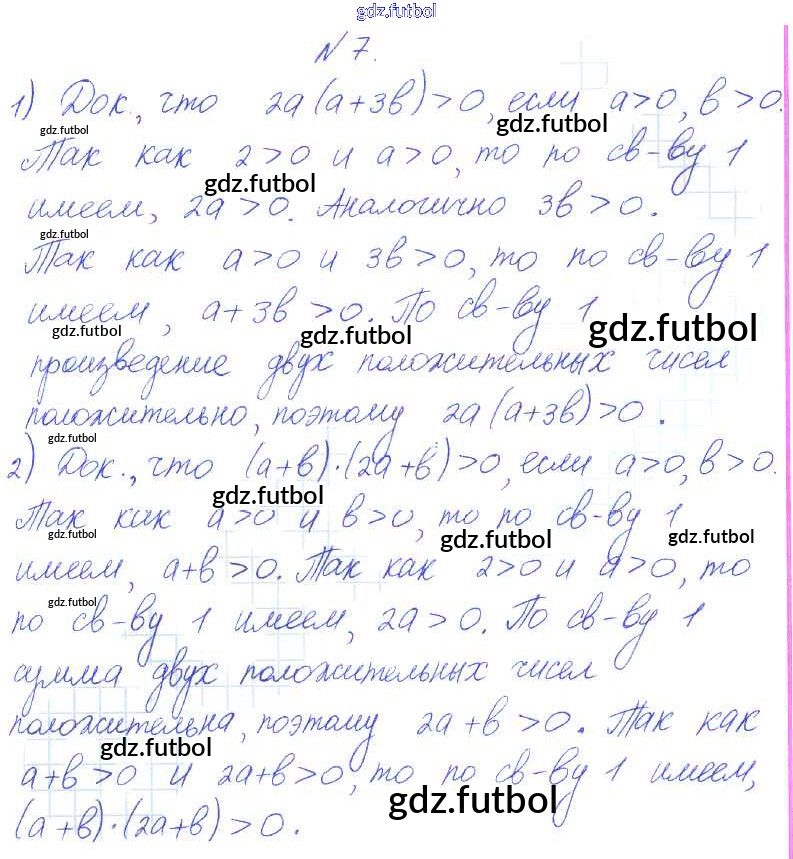 gdz.futbol
N 7.
1) Док., что 2a(a+3b)>0, если a>0, b>0.
gdz.futbol gdz.futbol
Так как 2>0 и a>0, то по св-ву 1
gdz.futbol
имеем, 2a>0. Аналогично 3b>0.
gdz.futbol
Так как a>0 и 3b>0, то по св-ву 1
имеем, a+3b>0. По св-ву 1
gdz.futbol gdz.futbol gdz.futbol
произведение двух положительных чисел
положительно, поэтому 2a(a+3b)>0.
gdz.futbol
2) Док., что (a+b)·(2a+b)>0, если a>0, b>0.
gdz.futbol
Так как a>0 и b>0, то по св-ву 1
gdz.futbol gdz.futbol gdz.futbol
имеем, a+b>0. Так как 2>0 и a>0, то
gdz.futbol
по св-ву 1 имеем, 2a>0. По св-ву 1
сумма двух положительных чисел
положительна, поэтому 2a+b>0. Так как
gdz.futbol
a+b>0 и 2a+b>0, то по св-ву 1 имеем,
gdz.futbol
(a+b)·(2a+b)>0.